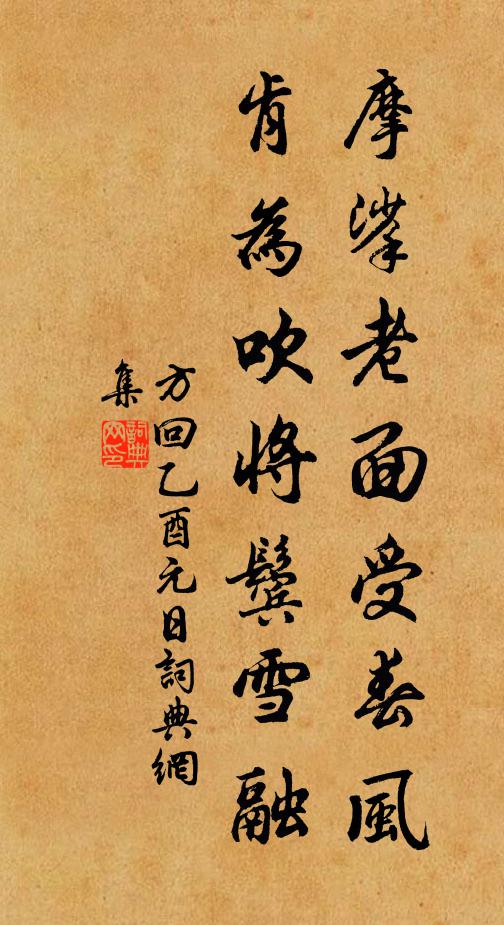 摩挲老面受春風
肯為吹將鬢雪融
方回乙酉元日詞典網
集
詞典網印